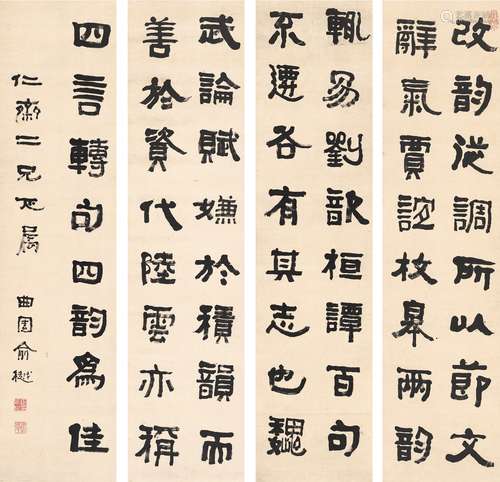 改韵從調所以節文
辭氣賈誼枚皋兩韵
輒易劉歆桓譚百句
不遷各有其志也魏
武論賦嫌於積韻而
善於資代陸雲亦稱
四言轉句四韵為佳
仁齋二兄正属 曲園俞樾